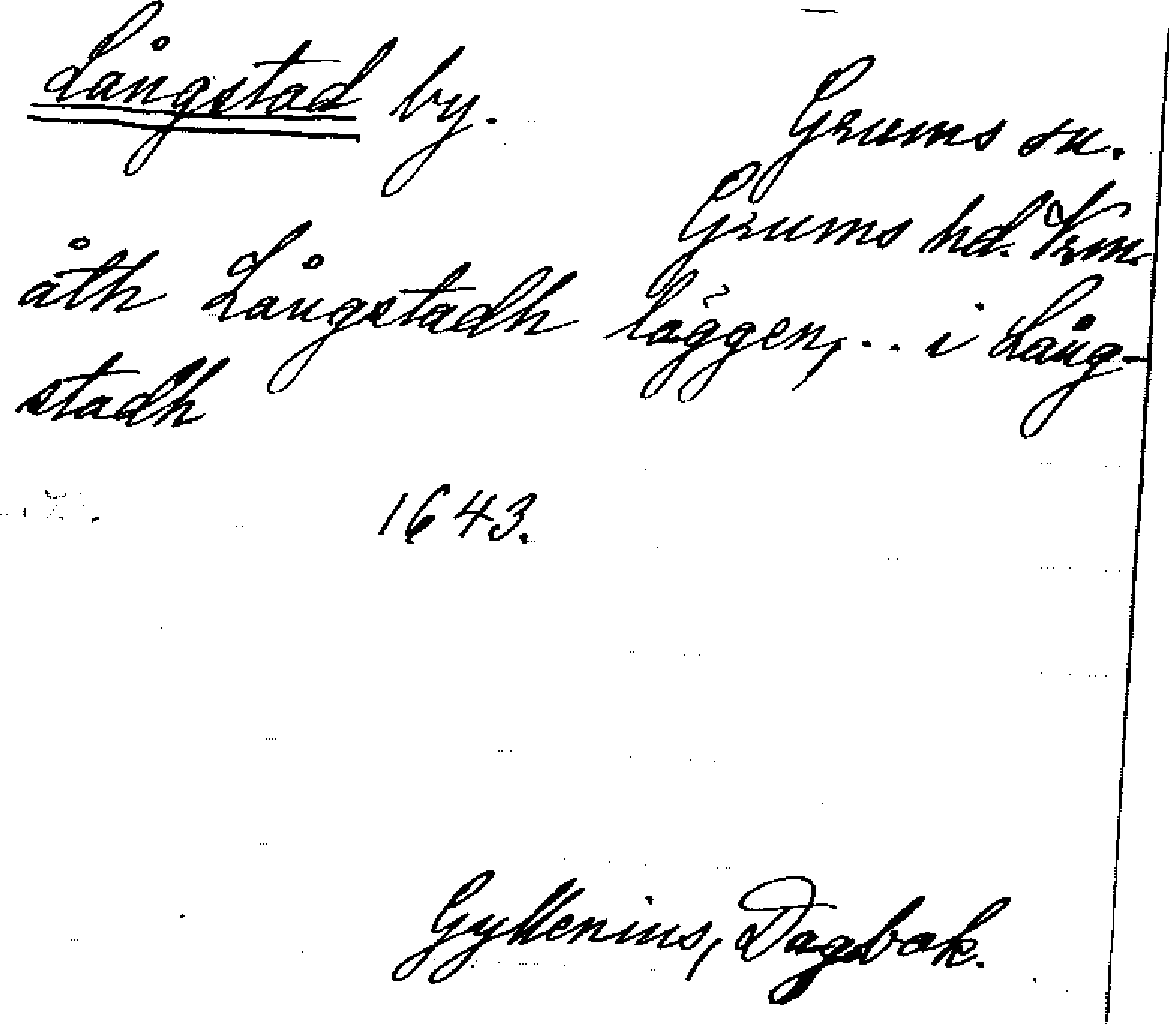 Långstad by.
Grums sn.
Grums hd. Vrm.
åth Långstadh läggen, .. i Lång-
stadh
1643.
Gyllenius, Dagbok.